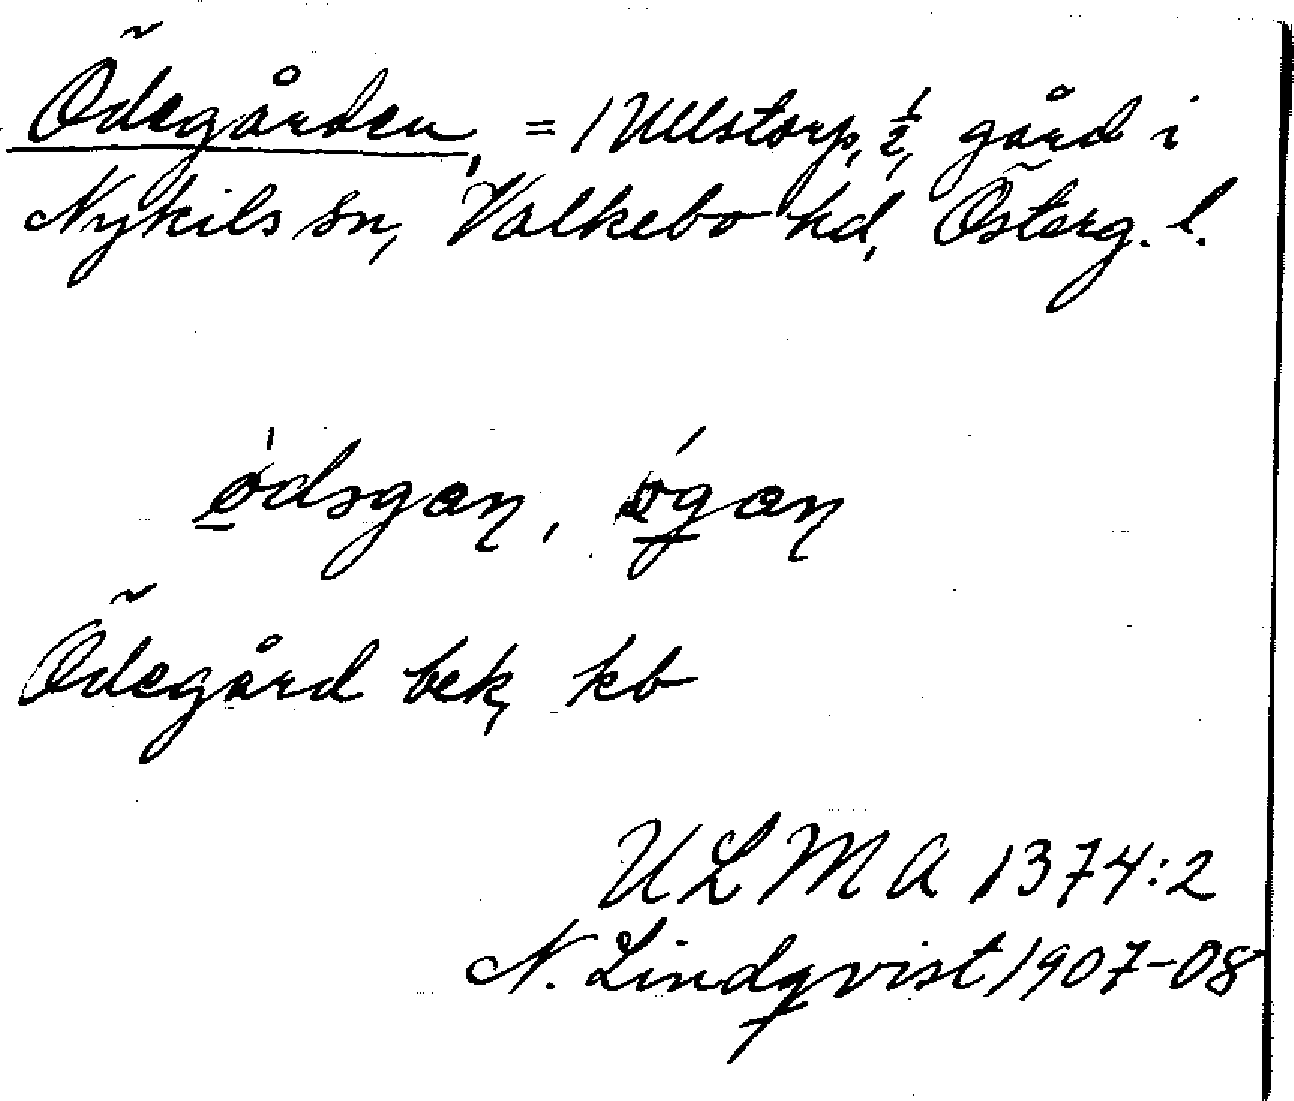 Ödegården, = 1 Ullstorp, ½ gård i
Nykils sn, Valkebo hd, Österg. l.
ø̱dsgaɳ, ø̱gaɳ
Ödegård bek, kb
ULMA 1374:2
N. Lindqvist 1907-08